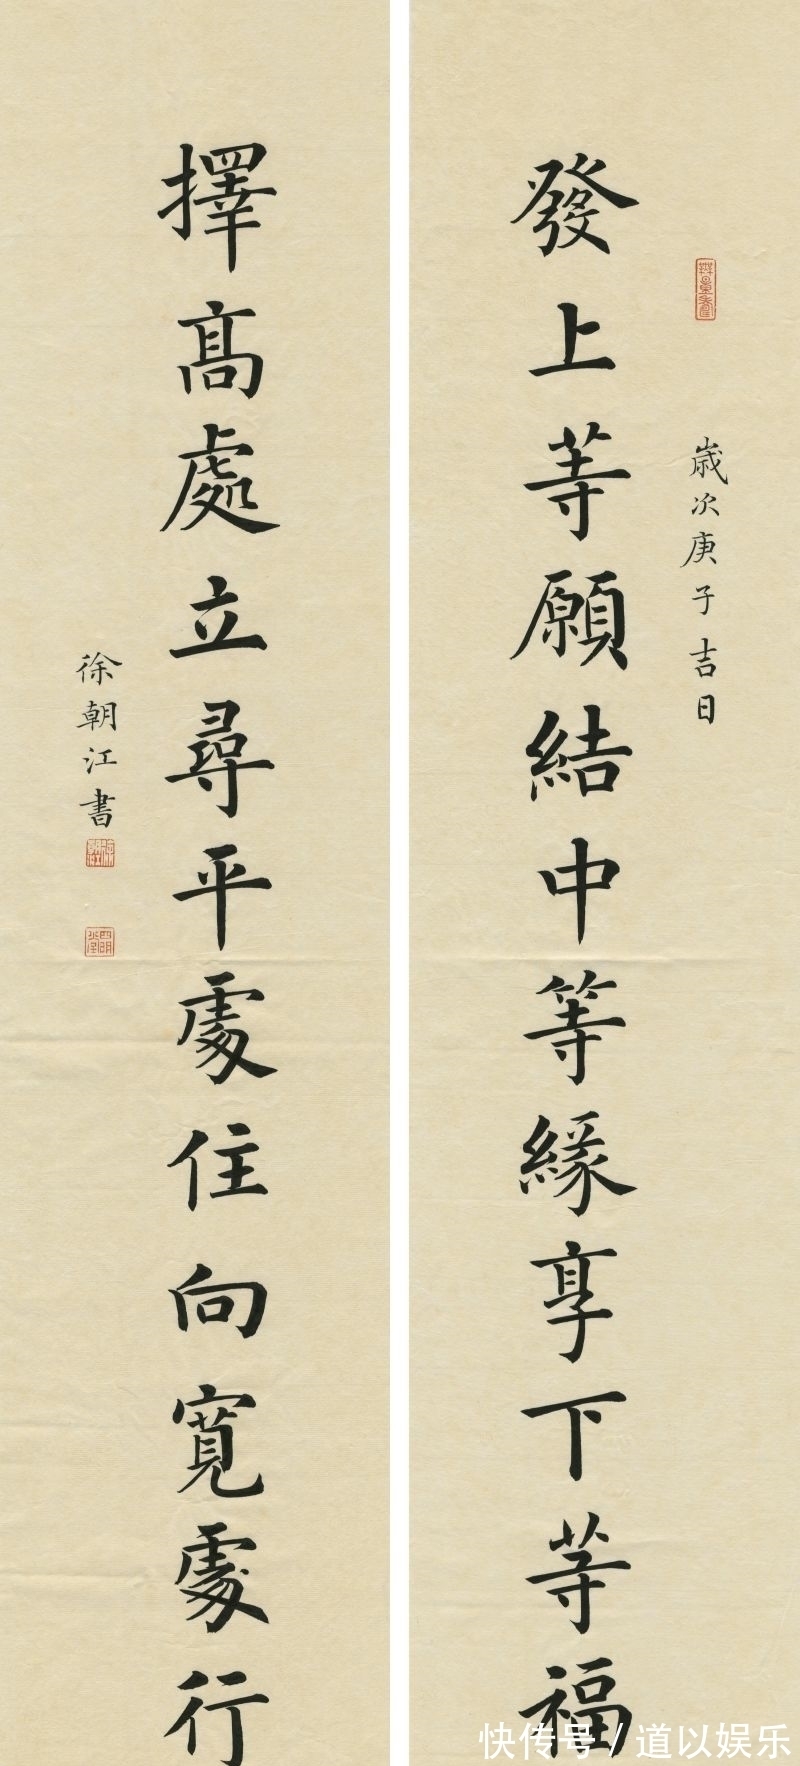 歲次庚子吉日
發上等願結中等緣享下等福
擇高處立尋平處住向寬處行
徐朝江書
快传号/道以娱乐